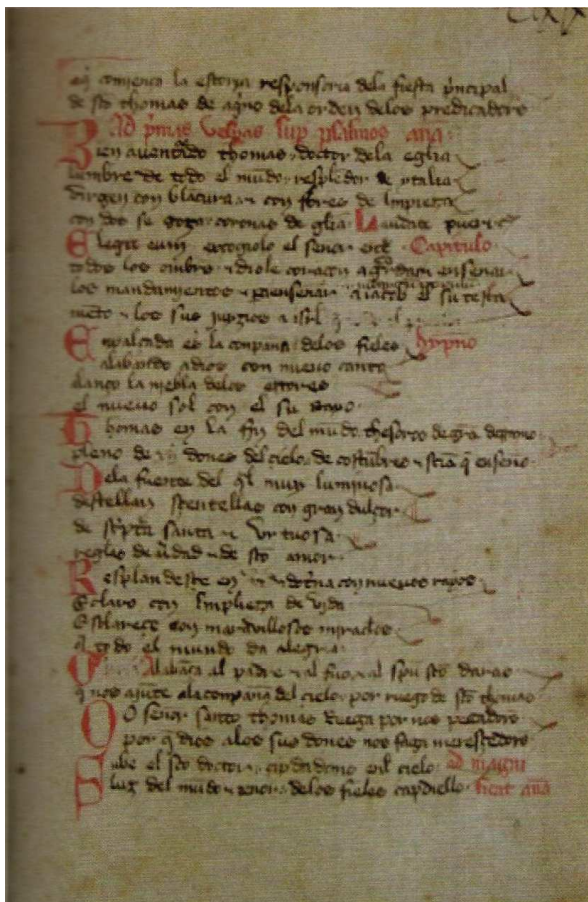 comiença la estoria responsoria dela fiesta prinçipal
de sto thomas de aqno dela orden delos predicadors
Ad pmas vespas sup psalmos ana
Bien aventado thomas doctor dela eglia
lumbre de todo el mudo respledor de ytalia
virgen con blacura con flores de limpieza
con dos se goza coronas de glia Laudate pueri
Elegit eum escogiolo el señor Capitulo
todos los ombrs diole coraçon enseñar
los mandamientos enseñar a iacob el su testa
meto los sus juyzios a isrl
Ensalçada es la conpaña delos fieles hypno
alabado adios con nuevo canto
alanço la niebla delos errores
el nuevo sol con el su rayo
Thomas en la fin del mudo thesoros de gra
pleno de dones del cielo de costubres
Dela fuente del ql muy luminosa
destellan çentellas con gran dulçor
de santa virtuosa
reglas de vdad de sto amor
Resplandeste con nuevos rayos
Esclaro con limpieza de vida
Esclareçe con maravillosos miraclos
q todo el mundo da alegria
Alabaça al padre al fijo al spu sto daras
q nos ajute ala compaña del cielo por ruego de sto thomas
O señor santo thomas Ruega por nos pecadors
por q dios alos sus dones nos faga meresçedors
Sube el sto doctor çipdadano enl cielo ad magni
lux del mudo delos fieles capdiello ficat ana